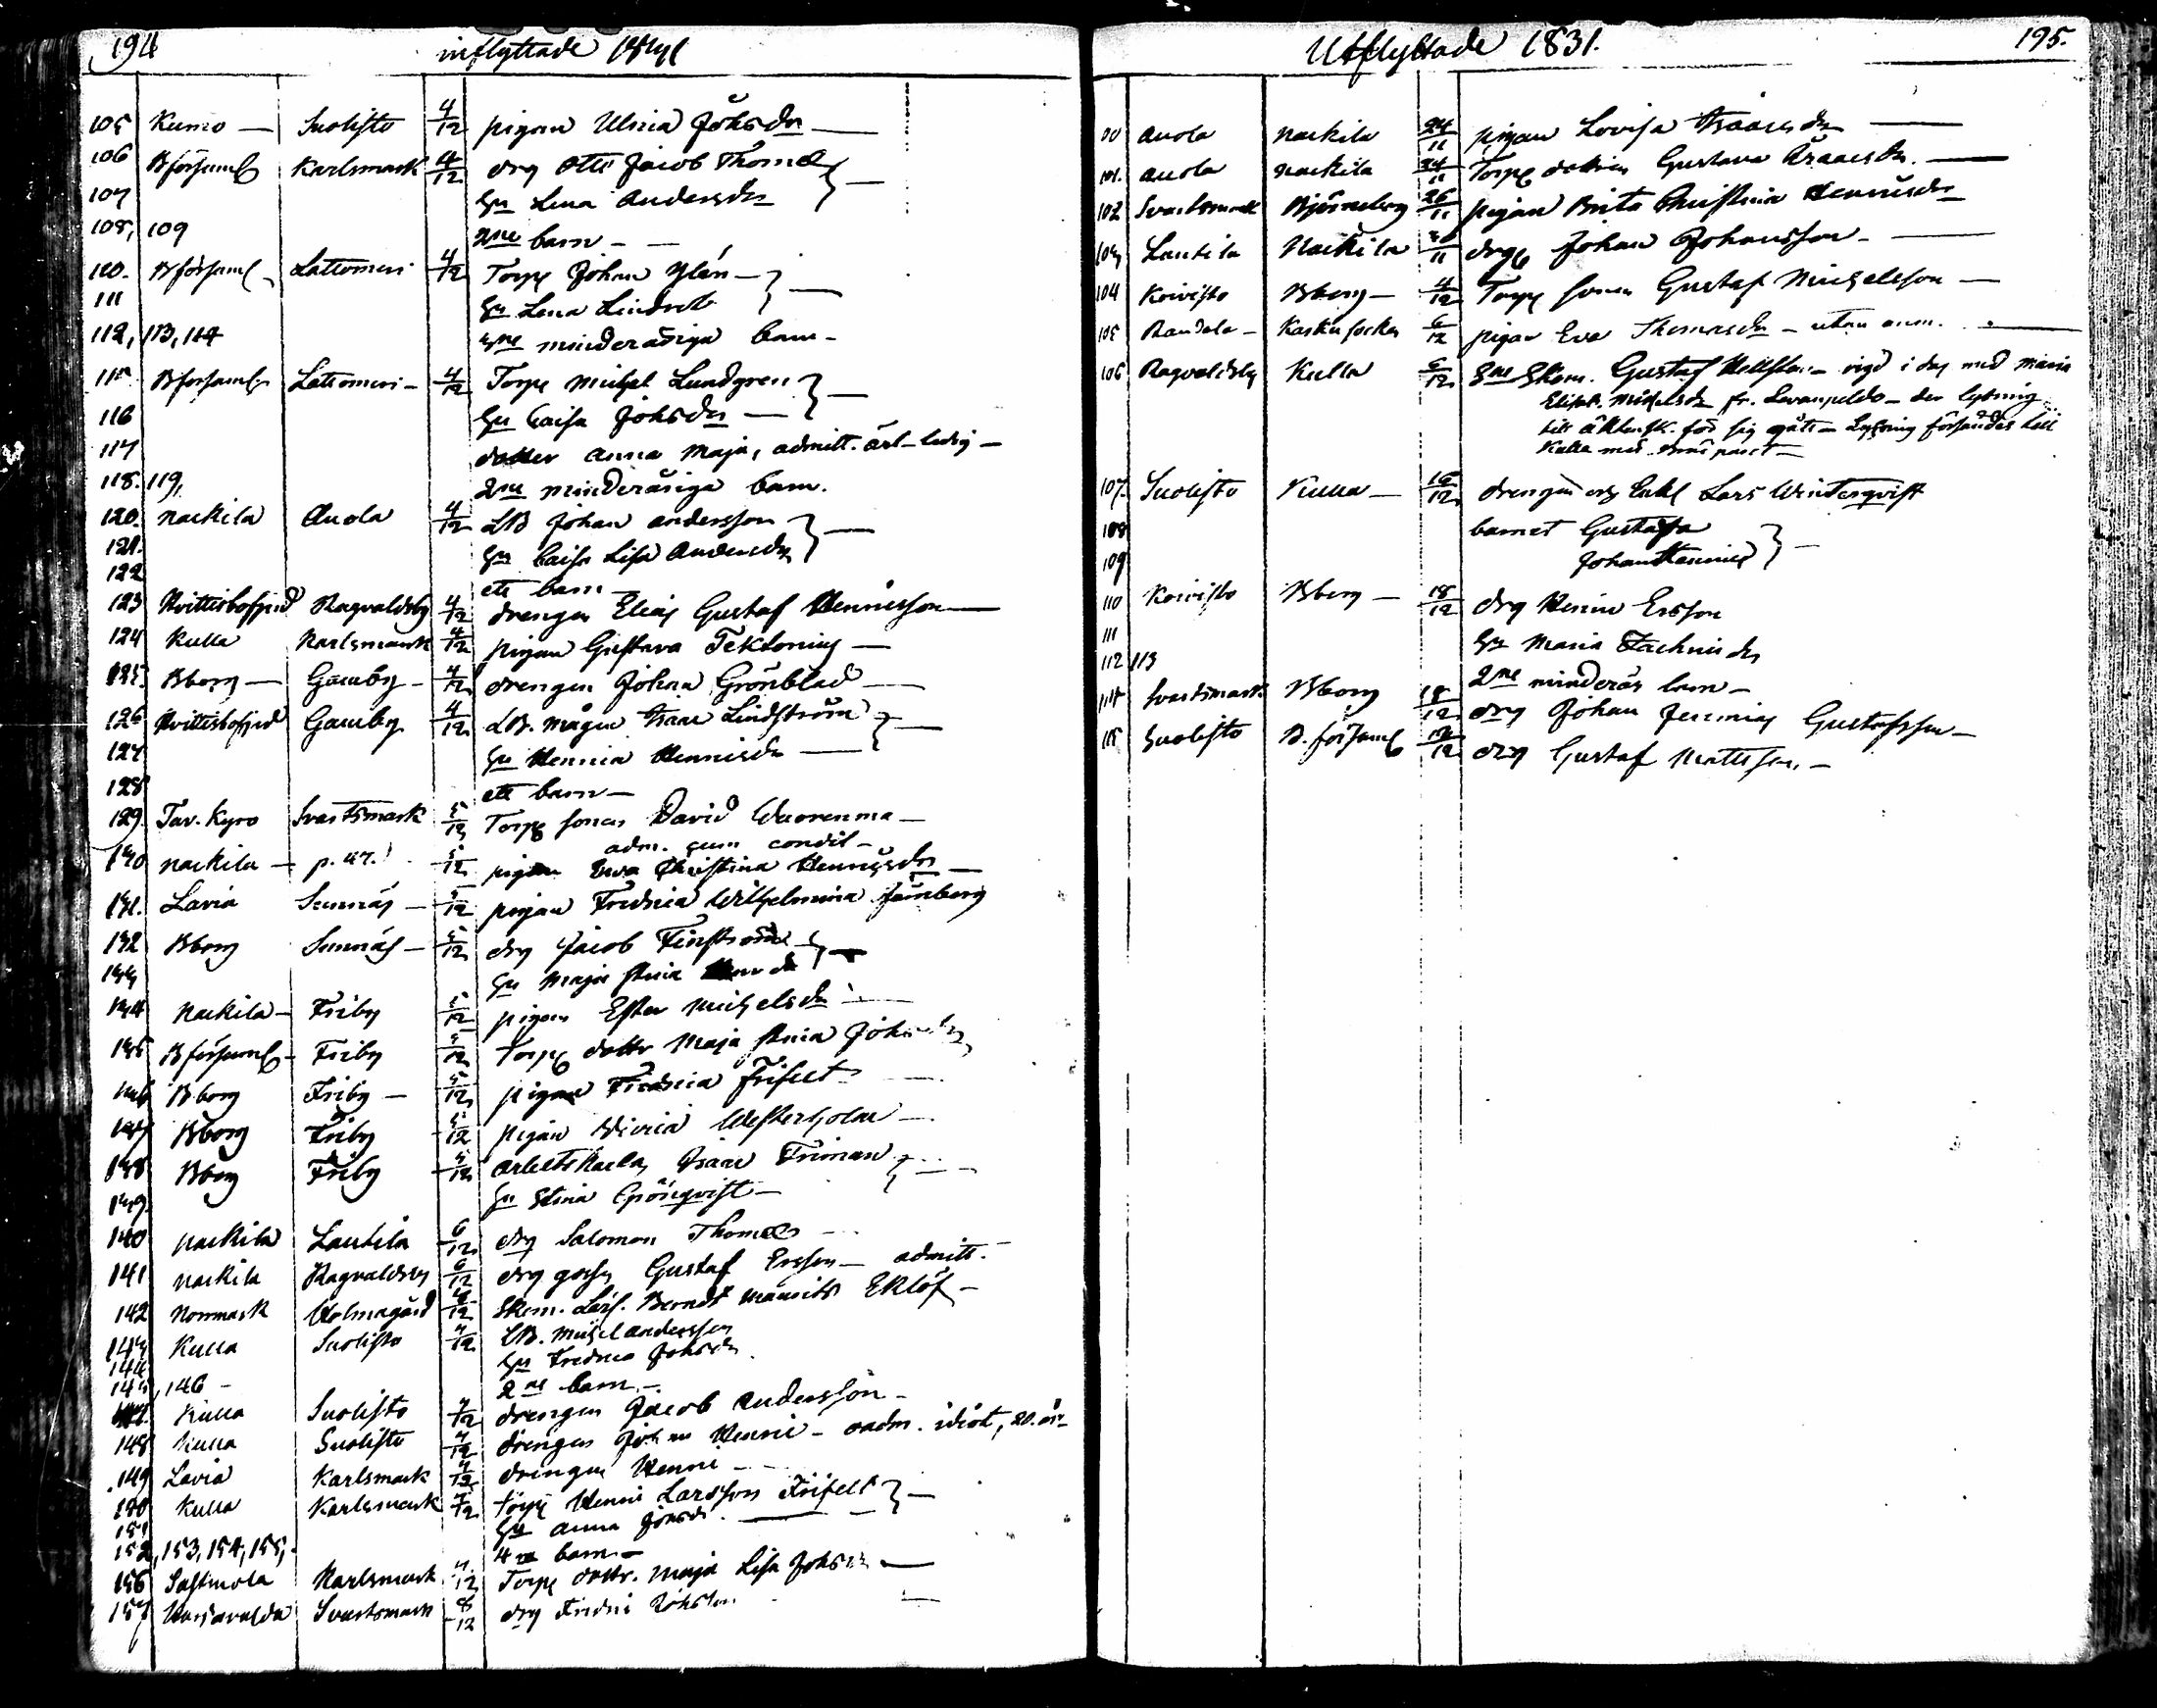 194
inflyttade 1831
105 Kumo — Suolisto 4/12 pigan Ulrica Johsdr —
106 Bförsaml Karlsmark 4/12 drg Otto Jacob Thomæ
107 hu Lena Andersdr
108, 109 2ne barn —
110. Bförsaml Lattomeri 4/12 Torp Johan Ylén —
111 hu Lena Lindroth
112, 113, 114 3ne minderåriga barn —
115 Bförsaml Lattomeri — 4/12 Torp Michel Lundgren
116 hu Caisa Johsdr —
117 dotter Anna Maja, admitt. ärl. ledig —
118. 119, 2ne minderåriga barn.
120. Nackila Anola 4/12 LB Johan Andersson
121. hu Caisa Lisa Andersdr
122 ett barn —
123 Hvittisbofjerd Ragvaldsby 4/12 drengen Elias Gustaf Hennisson —
124 Kulla Karlsmark 4/12 pigan Gustava Tektonius —
125. Bborg — Gamby — 4/12 drengen Johan Grönblad —
126 Hvittisbofjerd Gamby 4/12 LB. mågen Isaac Lindström —
127 hu Hennica Hennisdr —
128 ett barn —
129. Tav. Kyro Svartsmark 5/12 Torp sonen David Wuorenma —
adm. cum condit —
130 Nackila — 5/12 pigan Eva Christina Hennisdr —
131. Lavia Sunnäs — 5/12 pigan Fredrica Wilhelmina
132 Bborg Sunnäs — 5/12 drg Jacob Finström
133 hu Maja Stina
134 Nackila — Friby 5/12 pigan Ester Michelsdr —
135 Bförsaml — Friby 5/12 Torp dottr Maja Stina Johsdr
136 Bborg Friby — 5/12 pigan Fredrica Frifelt
137 Bborg Friby 5/12 pigan Westerholm —
138 Bborg Friby 5/12 arbetskarln Isaac Friman
139. hu Stina Grönqvist —
140 Nackila Lautila 6/12 drg Salomon Thomæ
141 Nackila Ragvaldsby 6/12 drg gossen Gustaf Ersson — admitt.
142 Norrmark Holmagård 6/12 Skom. Lärl. Berndt Maurits Eklöf —
143 Kulla Suolisto 7/12 LB. Michel Andersson
144 hu Fredrica Johsdr
145, 146 — 2ne barn —
147. Kulla Suolisto 7/12 drengen Jacob Andersson —
148 Kulla Suolisto 7/12 drengen Johan Henric — oadm. idiot, 20. år —
149 Lavia Karlsmark 7/12 drengen Henric —
150 Kulla Karlsmark 7/12 torp Henric Larsson Frifelt
151 hu Anna Johsdr —
152, 153, 154, 155, 4ra barn —
156 Sastmola Karlsmark 7/12 Torp dottr. Maja Lisa Johsdr —
157 Svartsmark 8/12 drg Fredric Johsson —
Utflyttade 1831.
195.
100 Anola Nackila 24/11 pigan Lovisa Isaacsdr —
101. Anola Nackila 24/11 Torp dottren Gustava Isaacsdr. —
102 Svartsmark Björneborg 26/11 pigan Brita Christina Henricsdr
103 Lautila Nackila 30/11 drg Johan Johansson —
104 Koivisto Bborg — 4/12 Torp sonen Gustaf Michelsson —
105 Randala — 6/12 pigan Eva Thomasdr — utan anm. —
106 Ragvaldsby Kulla 6/12 Skom. Gustaf Hellsten — vigd i dag med Maria
Elisab. Michelsdr fr. Levanpelto — der lysning
till äktensk. för sig gått — Lysning försändes till
Kulla med paret —
107. Suolisto Kulla — 16/12 drengen och Enkl Lars Winterqvist
108 barnet Gustafva
109 Johan Henric
110 Koivisto Bborg — 18/12 drg Henric Ersson
111 hu Maria Zachrisdr
112 113 2ne minderår barn —
114 Svartsmark Bborg 18/12 drg Johan Jeremias Gustafsson —
115 Suolisto B. församl 18/12 drg Gustaf Mattsson —